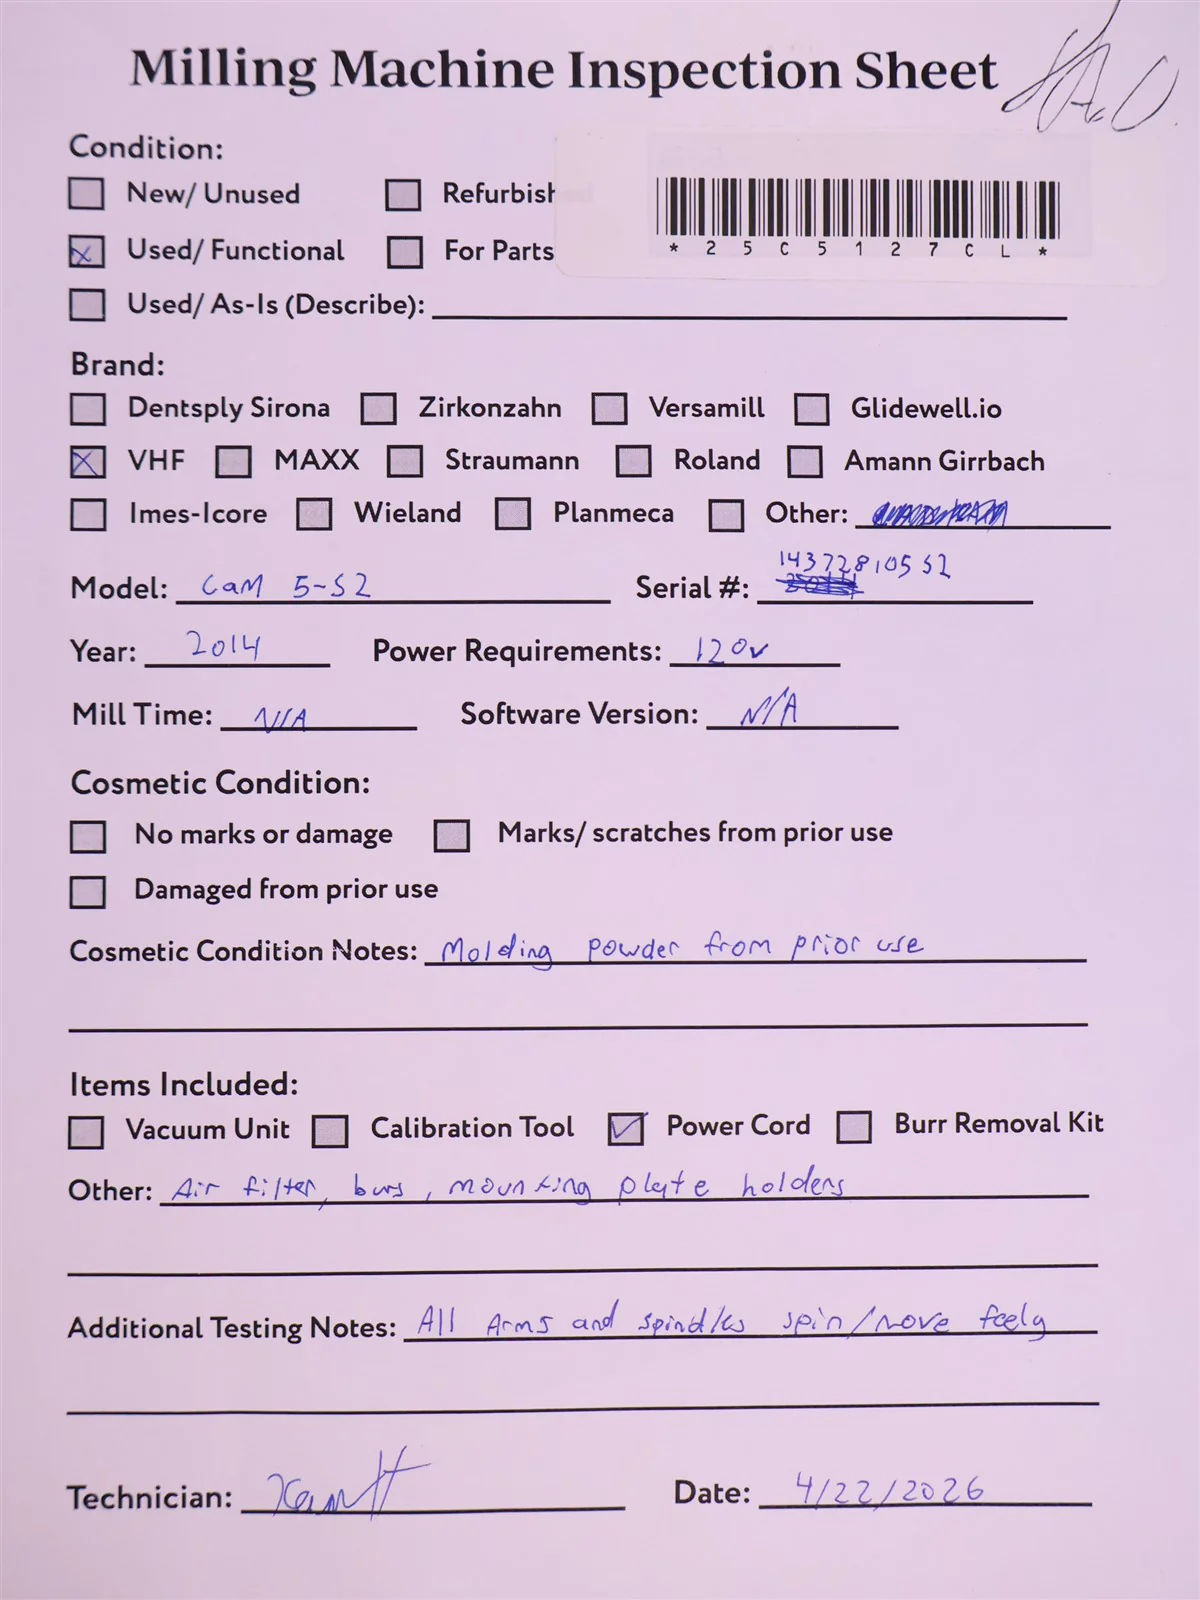 Milling Machine Inspection Sheet
Condition:
New/ Unused Refurbish
*25C5127CL*
Used/ Functional For Parts
Used/ As-Is (Describe):
Brand:
Dentsply Sirona Zirkonzahn Versamill Glidewell.io
VHF MAXX Straumann Roland Amann Girrbach
Imes-Icore Wieland Planmeca Other:
Model: Cam 5-S2 Serial #: 1437728105 S2
Year: 2014 Power Requirements: 120v
Mill Time: N/A Software Version: N/A
Cosmetic Condition:
No marks or damage Marks/ scratches from prior use
Damaged from prior use
Cosmetic Condition Notes: Molding powder from prior use
Items Included:
Vacuum Unit Calibration Tool Power Cord Burr Removal Kit
Other: Air filter, burs, mounting plate holders
Additional Testing Notes: All Arms and spindles spin/move feely
Technician:
Date: 4/22/2026